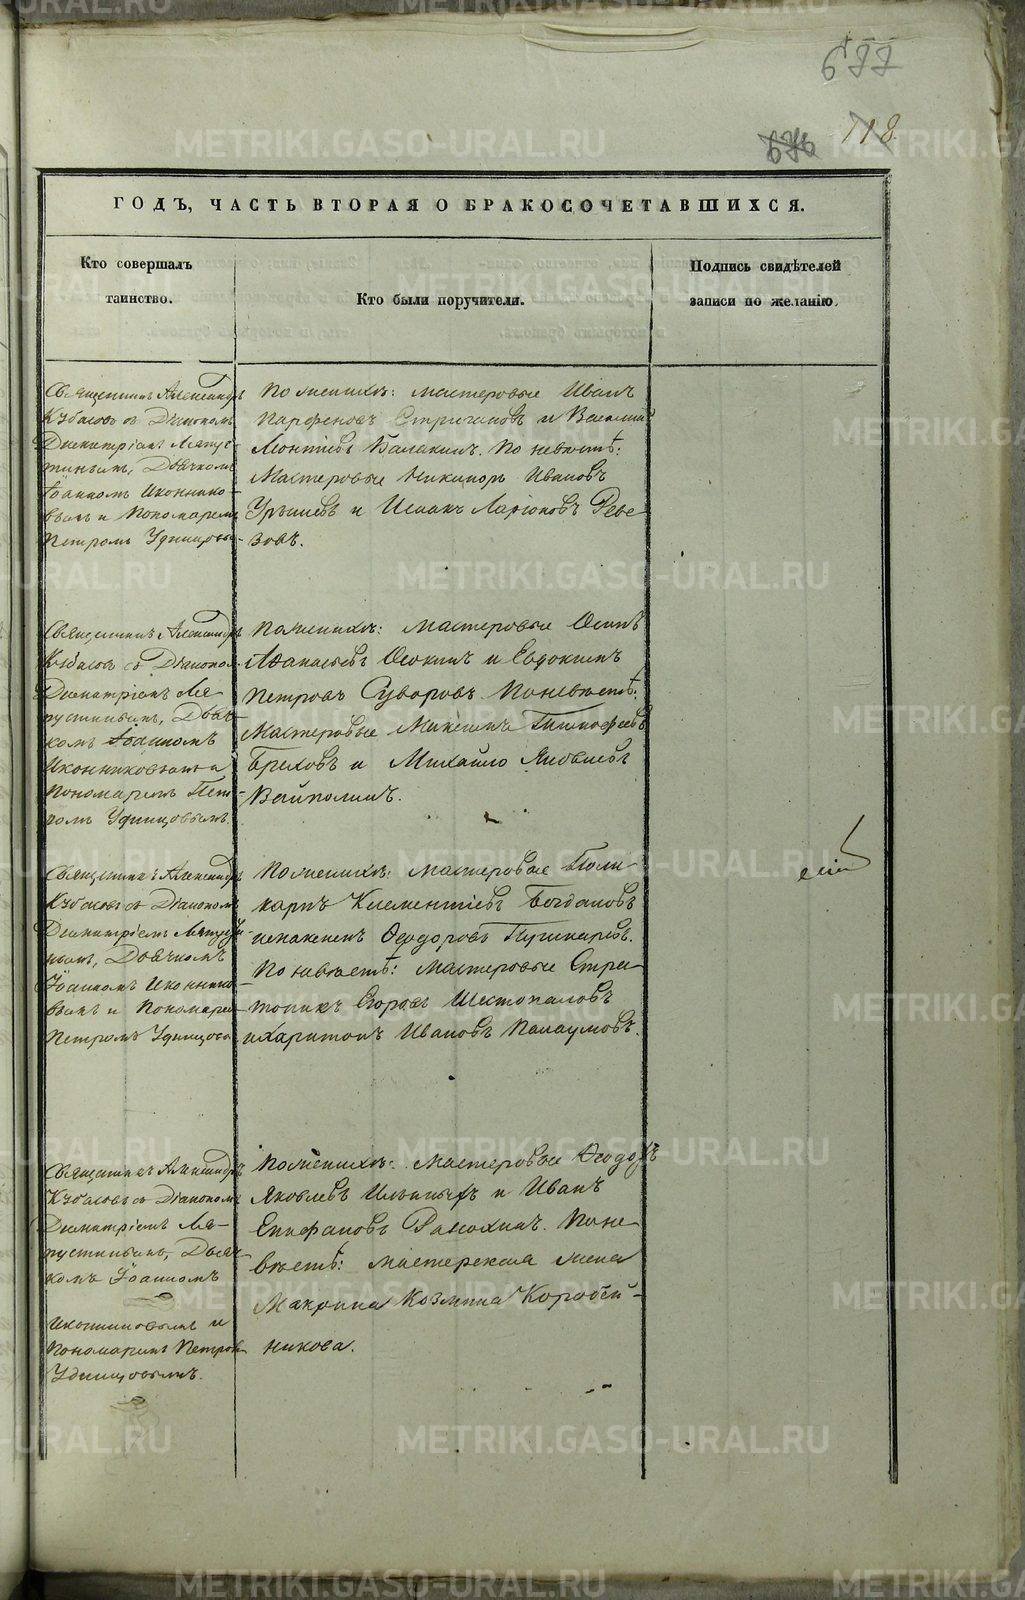 677
676 718.
ГОДЪ, ЧАСТЬ ВТОРАЯ О БРАКОСОЧЕТАВШИХСЯ.
Кто совершалъ
таинство.
Кто были поручители.
Подпись свидѣтелей
записи по желанію.
Священникъ Александръ
Кубасовъ съ Діакономъ
Димитріемъ Ляпус-
тинымъ, Дьячкомъ
Іоанномъ Иконнико-
вымъ и Пономаремъ
Петромъ Удинцовы-
По женихѣ: мастеровые Иванъ
Парфеновъ Стригановъ и Василій
Леонтіевъ Балакинъ. По невѣстѣ:
Мастеровые Никифоръ Ивановъ
и Исаакъ Ларіоновъ Реве-
зовъ.
Священникъ Александръ
Кубасовъ съ Діакономъ
Димитріемъ Ля-
пустинымъ, Дьяч-
комъ Іоанномъ
Иконниковымъ и
Пономаремъ Пет-
ромъ Удинцовымъ.
По женихѣ: мастеровые Осипъ
Афанасьевъ Осокинъ и Евдокимъ
Петровъ Суворовъ. По невѣстѣ:
Мастеровые Максимъ Тимофеевъ
Бреховъ и Михайло Яковлевъ
Священникъ Александръ
Кубасовъ съ Діакономъ
Димитріемъ Ляпусти-
нымъ, Дьячкомъ
Іоанномъ Иконнико-
вымъ и Пономаремъ
Петромъ Удинцовы
По женихѣ: мастеровые Поли-
карпъ Клементіевъ Богдановъ
Феодоровъ Пушкаревъ.
По невѣстѣ: мастеровые Стра-
тоникъ Егоровъ Шестопаловъ
и Харитонъ Ивановъ Палаумовъ.
Священникъ Александръ
Кубасовъ съ Діакономъ
Димитріемъ Ля-
пустинымъ, Дьяч-
комъ Іоанномъ
Иконниковымъ и
Пономаремъ Петромъ
Удинцовымъ.
По женихѣ: мастеровые Феодоръ
Яковлевъ Ильиныхъ и Иванъ
Епифановъ Рамохинъ. По не-
вѣстѣ: мастерская жена
Макрина Козмина Коробей-
никова.